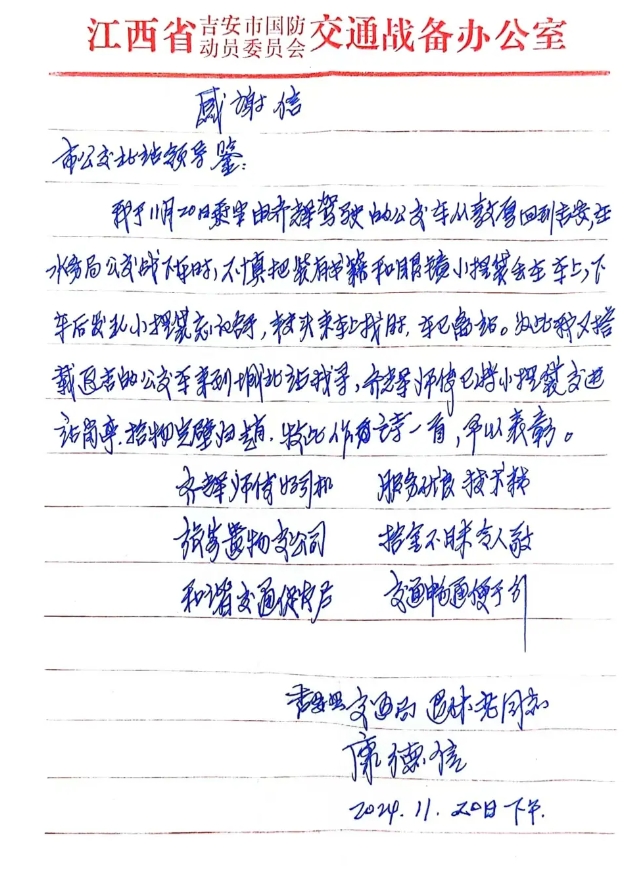 江西省吉安市国防动员委员会交通战备办公室
感谢信
市公交北站领导鉴:
我于11月20日乘坐由齐辉驾驶的公交车从敦厚回到吉安,在
水务局公交战下车时,不慎把装有书籍和眼镜小提袋丢在车上,下
车后发现小提袋忘记拿,转头乘车上找时,车已离站。为此我又搭
载返吉的公交车来到城北站找寻,齐辉师傅已将小提袋交进
站岗亭.拾物完璧归赵.特此作诗一首,予以表彰。
齐辉师傅好司机 服务优良技术精
旅客遗物交公司 拾金不昧令人敬
和谐交通保 交通畅通便于行
吉安县交通局退休老同志
康德信
2024.11.20日下午.